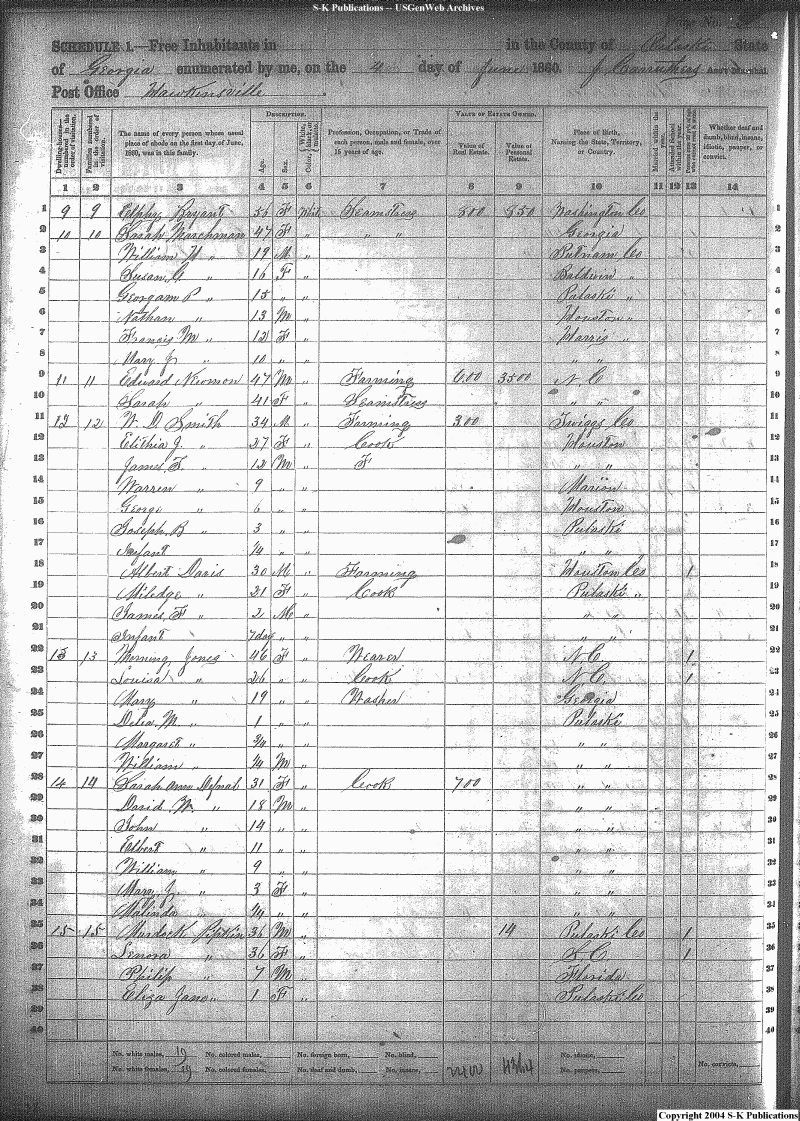 S-K Publications -- USGenWeb Archives
Page No.
SCHEDULE 1.—Free Inhabitants in in the County of Pulaski State
of Georgia enumerated by me, on the 4 day of June 1860. J Carruthers Ass't Marshal
Post Office Hawkinsville
Dwelling-houses—numbered in the order of visitation. Families numbered in the order of visitation. The name of every person whose usual place of abode on the first day of June, 1860, was in this family. DESCRIPTION. Age. Sex. Color, White, black, or mulatto. Profession, Occupation, or Trade of each person, male and female, over 15 years of age. VALUE OF ESTATE OWNED. Value of Real Estate. Value of Personal Estate. Place of Birth, Naming the State, Territory, or Country. Married within the year. Attended School within the year. Persons over 20 y'rs of age who cannot read & write. Whether deaf and dumb, blind, insane, idiotic, pauper, or convict.
1 2 3 4 5 6 7 8 9 10 11 12 13 14
1 9 9 Elphy Bryant 56 F Whit Seamstress 800 850 Washington Co 1
2 10 10 Sarah Marchman 47 F " " " Georgia 2
3 William H " 19 M " Putnam Co 3
4 Susan G " 16 F " Baldwin " 4
5 Georgann P " 15 " " Pulaski " 5
6 Nathan " 13 M " Houston " 6
7 Francis M " 12 F " Harris " 7
8 Mary J " 10 " " " " 8
9 11 11 Edward Newmon 47 M " Farming 600 3500 N C 9
10 Sarah " 41 F " Seamstress " " 10
11 12 12 W. D Smith 34 M " Farming 300 Twiggs Co 11
12 Elithia J. " 27 F " Cook Houston 12
13 James F. " 12 M " F " " 13
14 Warren " 9 " " Marion 14
15 George " 6 " " Houston 15
16 Joseph B " 3 " " Pulaski 16
17 Infant 1/4 " " " " 17
18 Albert Davis 30 M " Farming Houston Co 1 18
19 Miledge " 21 F " Cook Pulaski " 19
20 James, F " 2 M " " " 20
21 Infant 7day " " " " 21
22 13 13 Morning Jones 46 F " Weaver N C. 1 22
23 Louisa " 26 " " Cook N C. 1 23
24 Mary " 19 " " Washer Georgia 24
25 Delia M. " 1 " " Pulaski 25
26 Margaret " 3/4 " " " " 26
27 William " 1/4 M " " " 27
28 14 14 Sarah Ann Defnal 31 F " Cook 700 " " 28
29 David W. " 18 M " " " 29
30 John " 14 " " " " 30
31 Elbert " 11 " " " " 31
32 William " 9 " " " " 32
33 Mary J. " 3 F " " " 33
34 Malinda " 1/4 " " " " 34
35 15 15 Murdock Pipkin 36 M " 14 Pulaski Co 1 35
36 Senora " 36 F " S. C 1 36
37 Philip " 7 M " Florida 37
38 Eliza Jane " 1 F " Pulaski Co 38
39 39
40 40
No. white males, 19 No. colored males, No. foreign born, No. blind, No. idiotic,
No. white females, 19 No. colored females, No. deaf and dumb, No. insane, 2400 4364 No. paupers, No. convicts,
Copyright 2004 S-K Publications